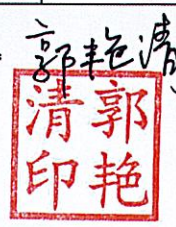 郭艳清
郭艳
清印